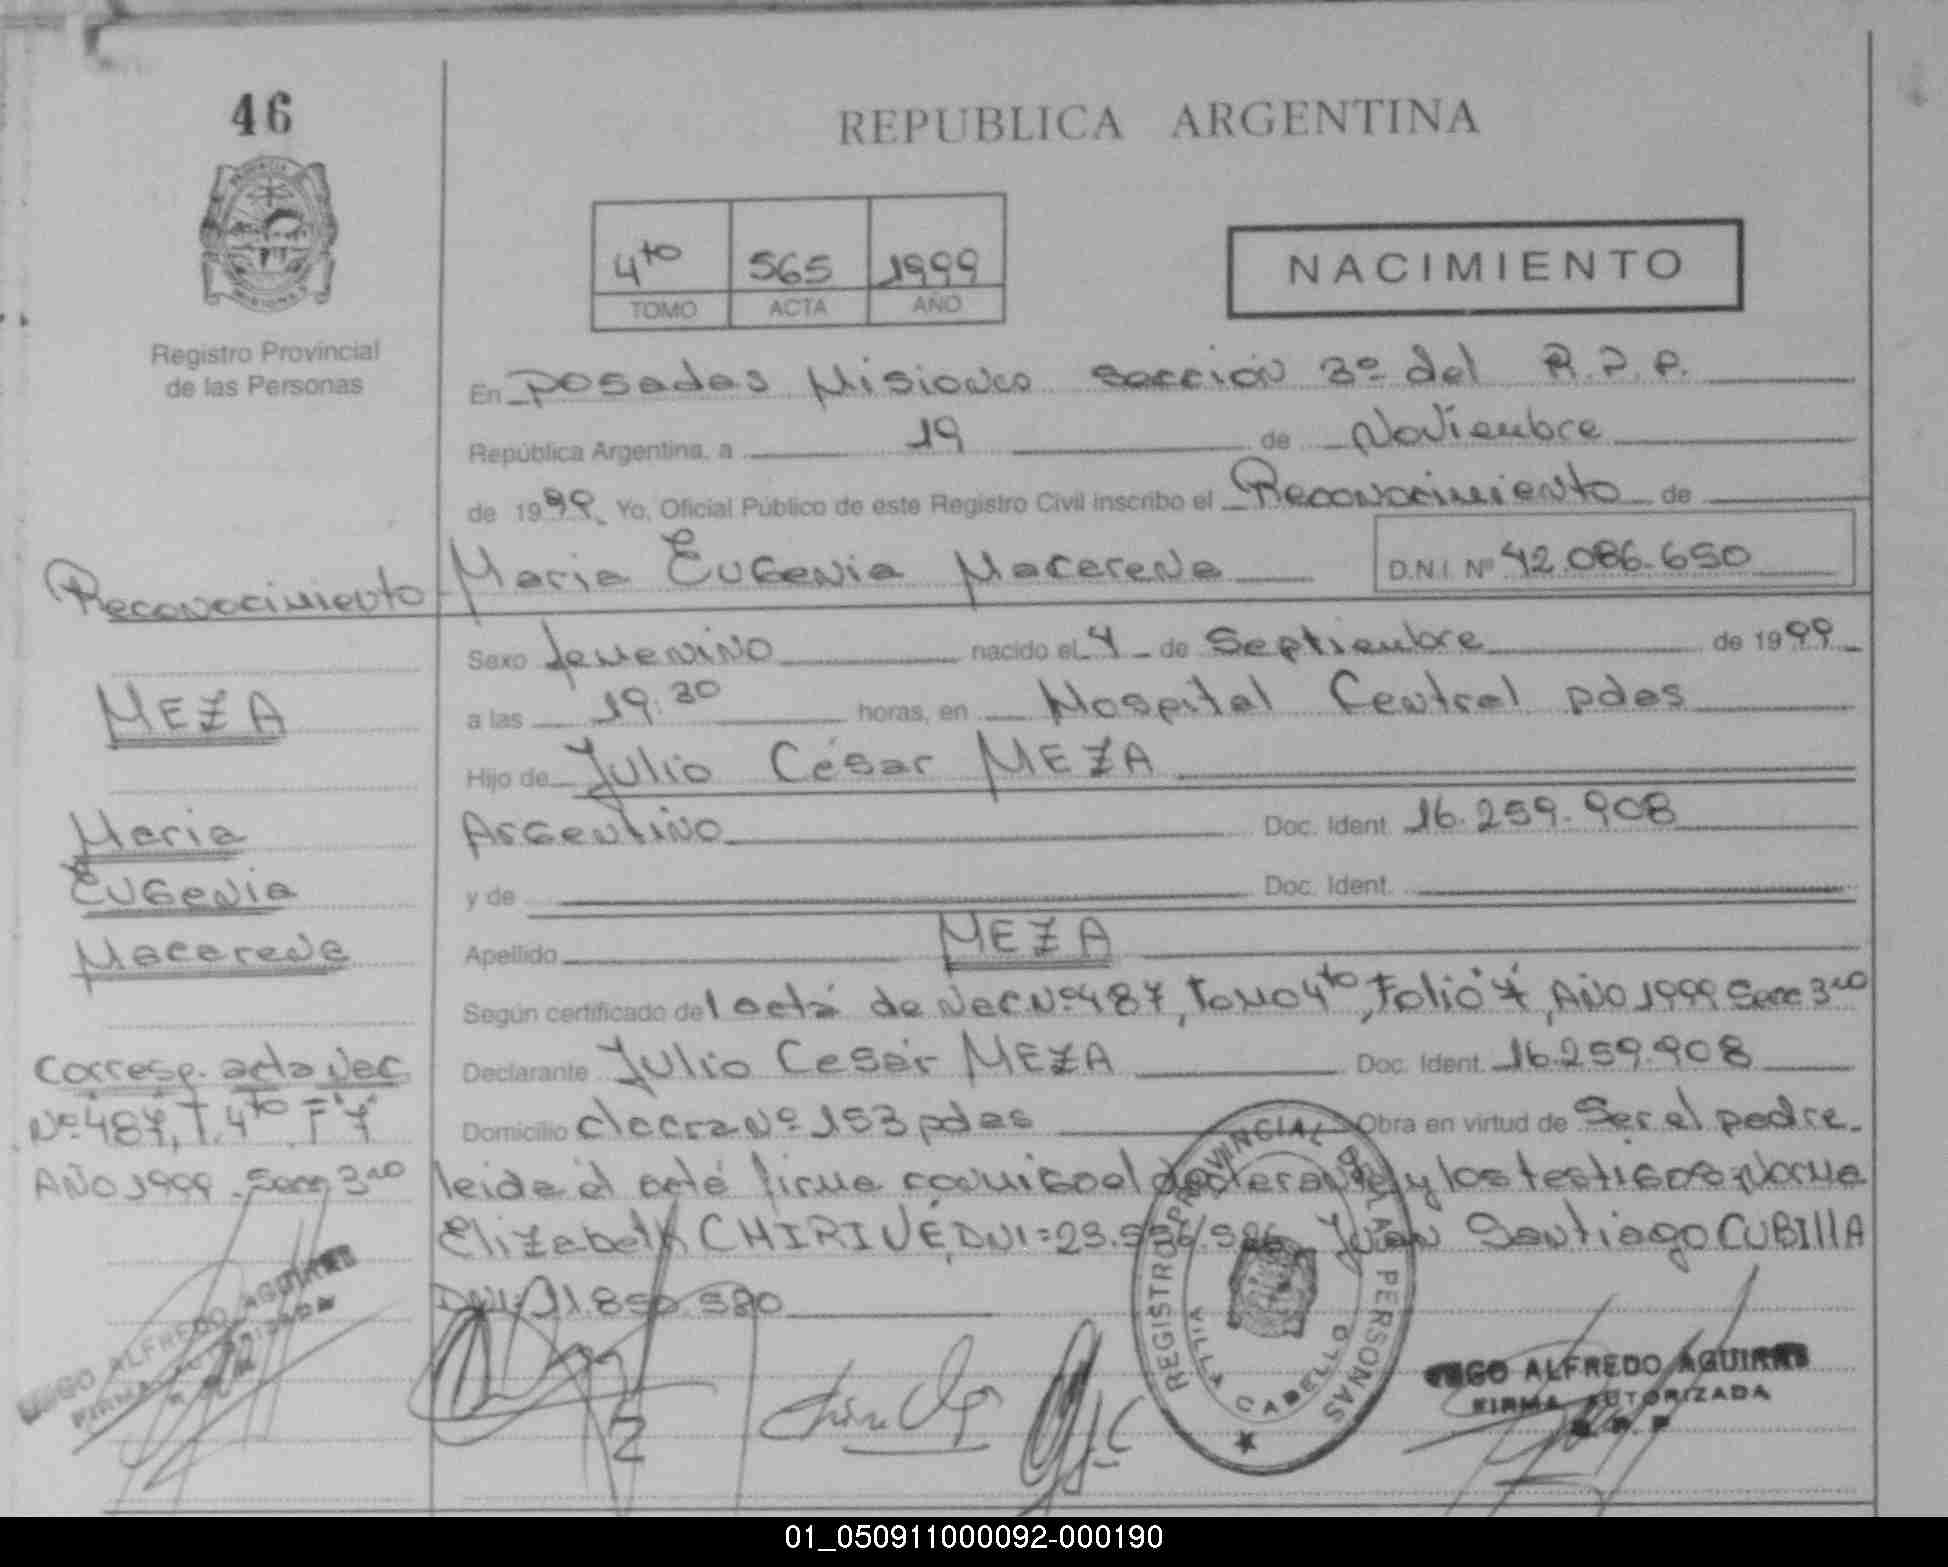 46
Registro Provincial
de las Personas
REPUBLICA ARGENTINA
4to 565 1999
TOMO ACTA AÑO
NACIMIENTO
En Posadas Misiones sección 3º del R.P.P.
República Argentina, a 19 de Noviembre
de 1999. Yo, Oficial Público de este Registro Civil inscribo el Reconocimiento de
Maria Eugenia Macarena D.N.I. Nº 42.086.650
Sexo femenino nacido el 4 de Septiembre de 1999
a las 19:30 horas, en Hospital Central pdas
Hijo de Julio César MEZA
Argentino Doc. Ident. 16.259.908
y de Doc. Ident.
Apellido MEZA
Según certificado del acta de Nac Nº 487, Tomo 4to, Folio 7, AÑO 1999 Secc 3ra
Declarante Julio Cesar MEZA Doc. Ident. 16.259.908
Domicilio chacra Nº 153 pdas Obra en virtud de Ser el padre.
leida el acta firma conmigo el declarante y los testigos Norma
Elizabeth CHIRIVE, DNI = Juan Santiago CUBIllA
DNI:
Reconocimiento
MEZA
Maria
Eugenia
Macarena
Corresp. acta Nac
Nº 487, T. 4to F "7"
AÑO 1999. Secc 3ra
HUGO ALFREDO AGUIRRE
FIRMA AUTORIZADA
REGISTRO PROVINCIAL DE LAS PERSONAS
VILLA CABELLO
HUGO ALFREDO AGUIRRE
FIRMA AUTORIZADA
R.P.P
01_050911000092-000190